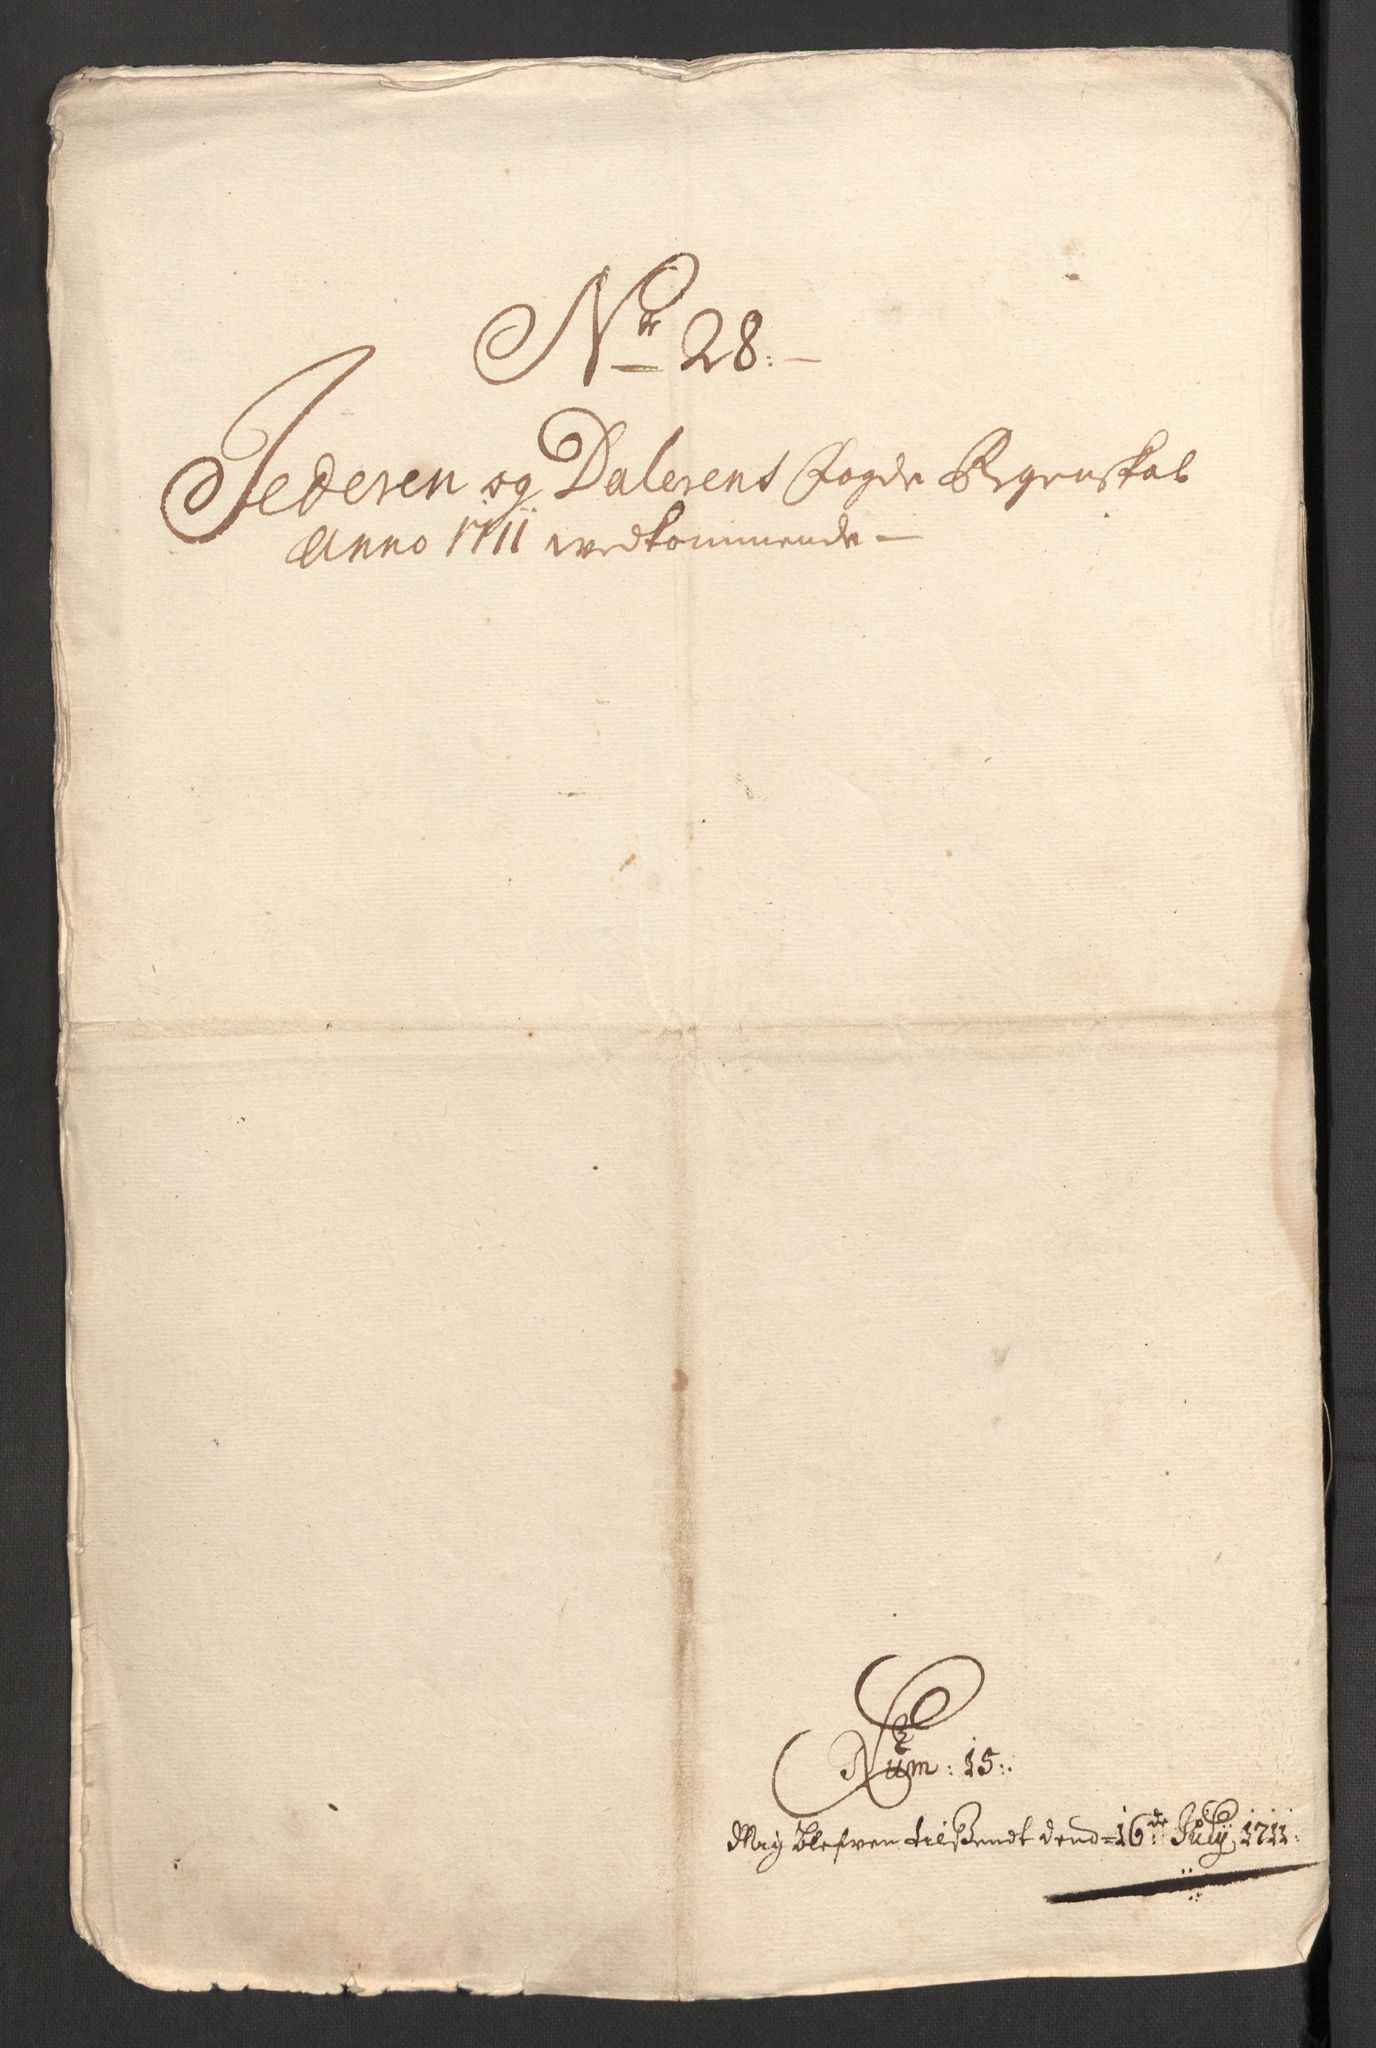 No 28.
Jederen og Dalerens Fogde Regenskab
Anno 1711 wedkommende
Num: 15:
Mig blefven tilsendt dend 16de July 1711.